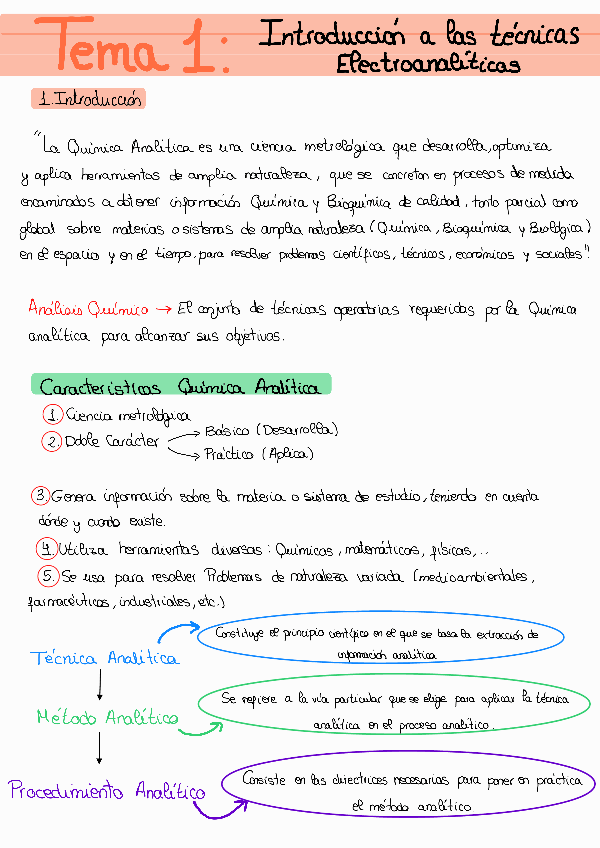 Tema 1: Introducción a las técnicas
Electroanalíticas
1. Introducción
"La Química Analítica es una ciencia metrológica que desarrolla, optimiza
y aplica herramientas de amplia naturaleza, que se concretan en procesos de medida
encaminados a obtener información Química y Bioquímica de calidad, tanto parcial como
global sobre materias o sistemas de amplia naturaleza (Química, Bioquímica y Biológica)
en el espacio y en el tiempo, para resolver problemas científicos, técnicos, económicos y sociales".
Análisis Químico → El conjunto de técnicas operatorias requeridas por la Química
analítica para alcanzar sus objetivos.
Características Química Analítica
1. Ciencia metrológica
2. Doble Carácter → Básico (Desarrolla)
→ Práctico (Aplica)
3. Genera información sobre la materia o sistema de estudio, teniendo en cuenta
dónde y cuando existe.
4. Utiliza herramientas diversas: Químicas, matemáticas, físicas,...
5. Se usa para resolver Problemas de naturaleza variada (medioambientales,
farmacéuticos, industriales, etc.)
Técnica Analítica
Constituye el principio científico en el que se basa la extracción de
información analítica
Método Analítico
Se refiere a la vía particular que se elige para aplicar la técnica
analítica en el proceso analítico.
Procedimiento Analítico
Consiste en las directrices necesarias para poner en práctica
el método analítico